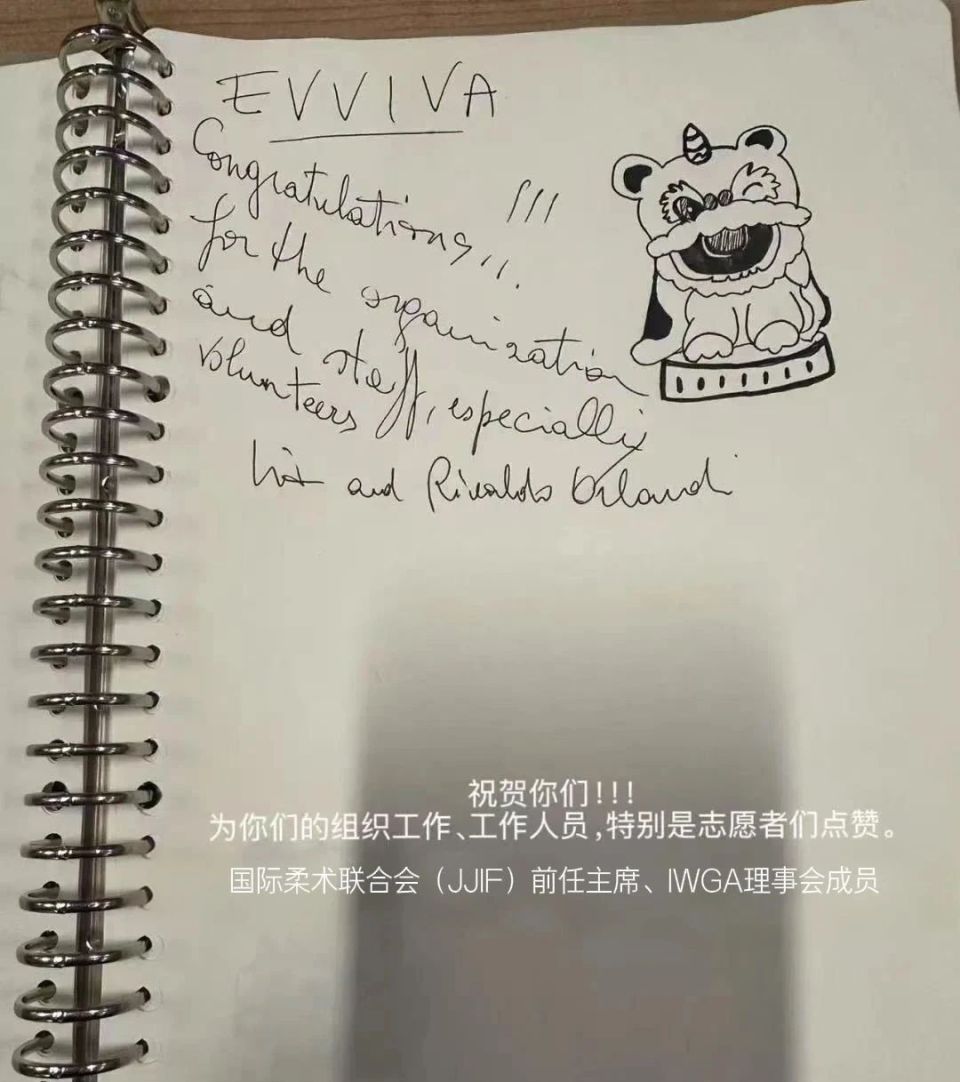 EVVIVA
Congratulations,,. !!!
for the organization
and staff, especially
volunteers
and Rinaldo Orlandi
祝贺你们!!!
为你们的组织工作、工作人员,特别是志愿者们点赞。
国际柔术联合会（JJIF）前任主席、IWGA理事会成员